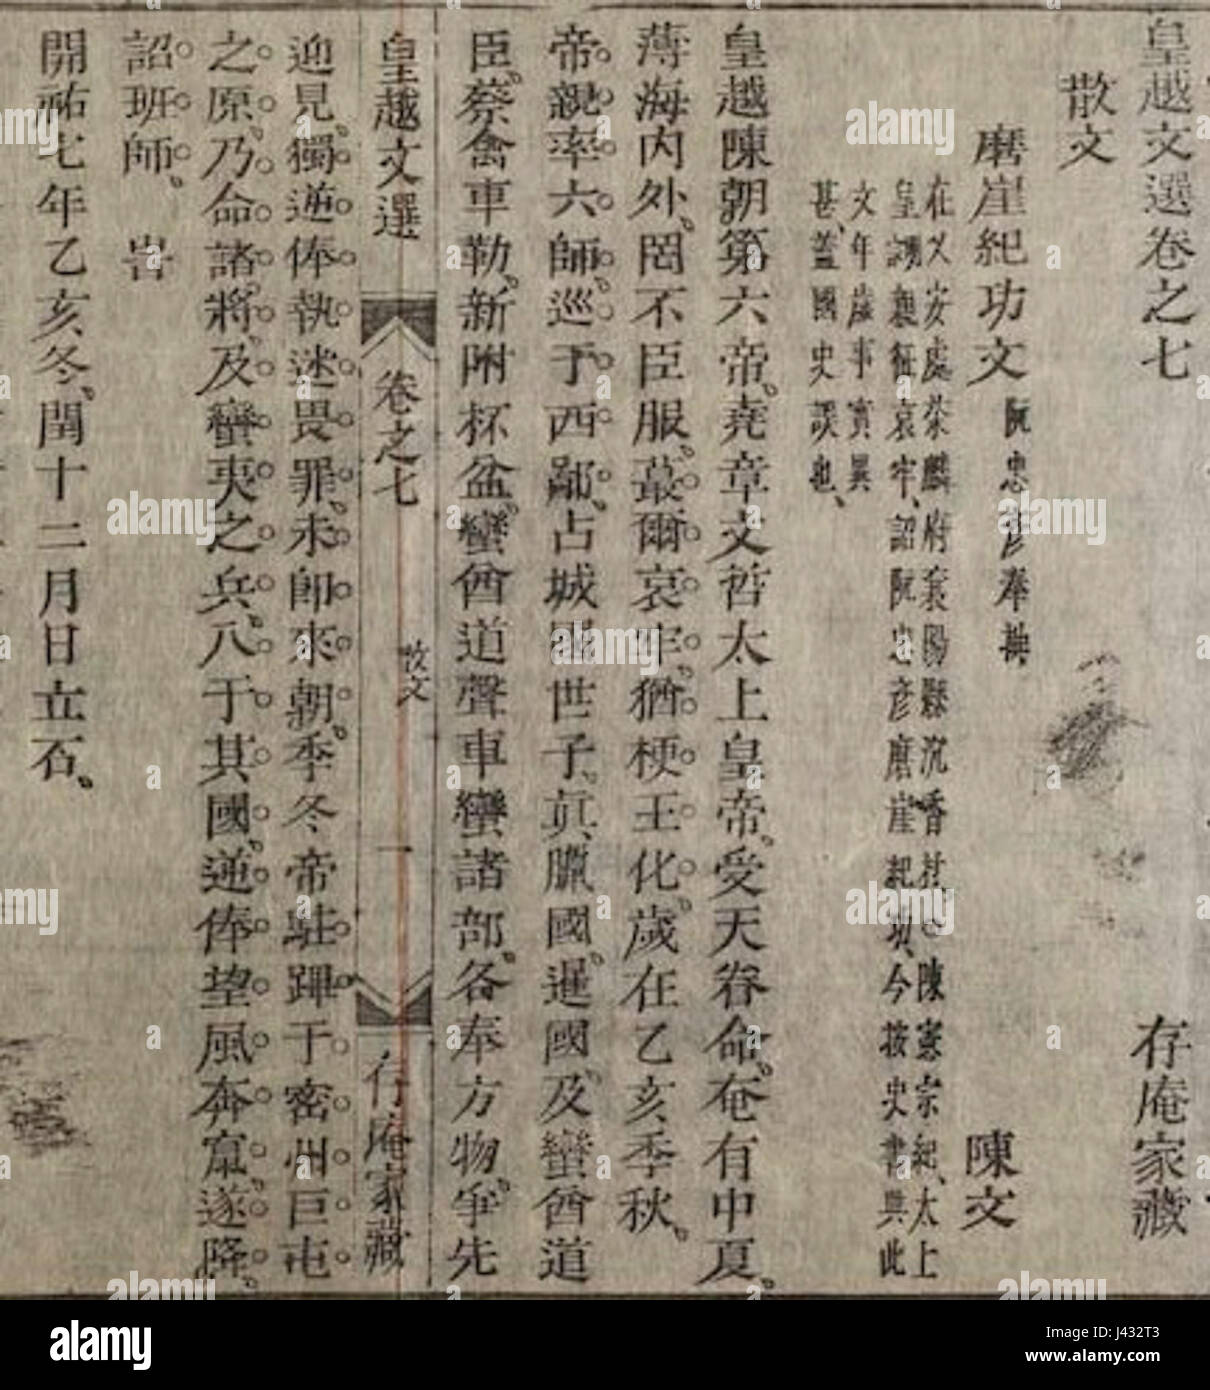 皇越文選卷之七
存庵家藏
散文
磨崖紀功文 阮忠彥奉撰
陳文
在乂安處茶麟府襄陽縣沉香社○陳憲宗紀太上
皇詔親征哀牢、詔阮忠彥磨崖紀功、今按史書與此
文年歲事實異
甚、蓋國史誤也、
皇越陳朝第六帝。堯章文哲太上皇帝。受天眷命。奄有中夏。
薄海內外。罔不臣服。蕞爾哀牢。猶梗王化。歲在乙亥季秋。
帝親率六師。巡于西鄙。占城國世子、真臘國。暹國、及蠻酋道
臣。蔡禽車勒。新附杯盆。蠻酋道聲車蠻諸部。各奉方物。爭先
皇越文選 卷之七 散文 一 存庵家藏
迎見。獨逆俸執迷畏罪、未即來朝。季冬帝駐蹕于密州巨屯
之原。乃命諸將、及蠻夷之兵、入于其國、逆俸望風奔竄。遂降。
詔班師。 旹
開祐七年乙亥冬、閏十二月日立石。
alamy
Image ID: J432T3
www.alamy.com